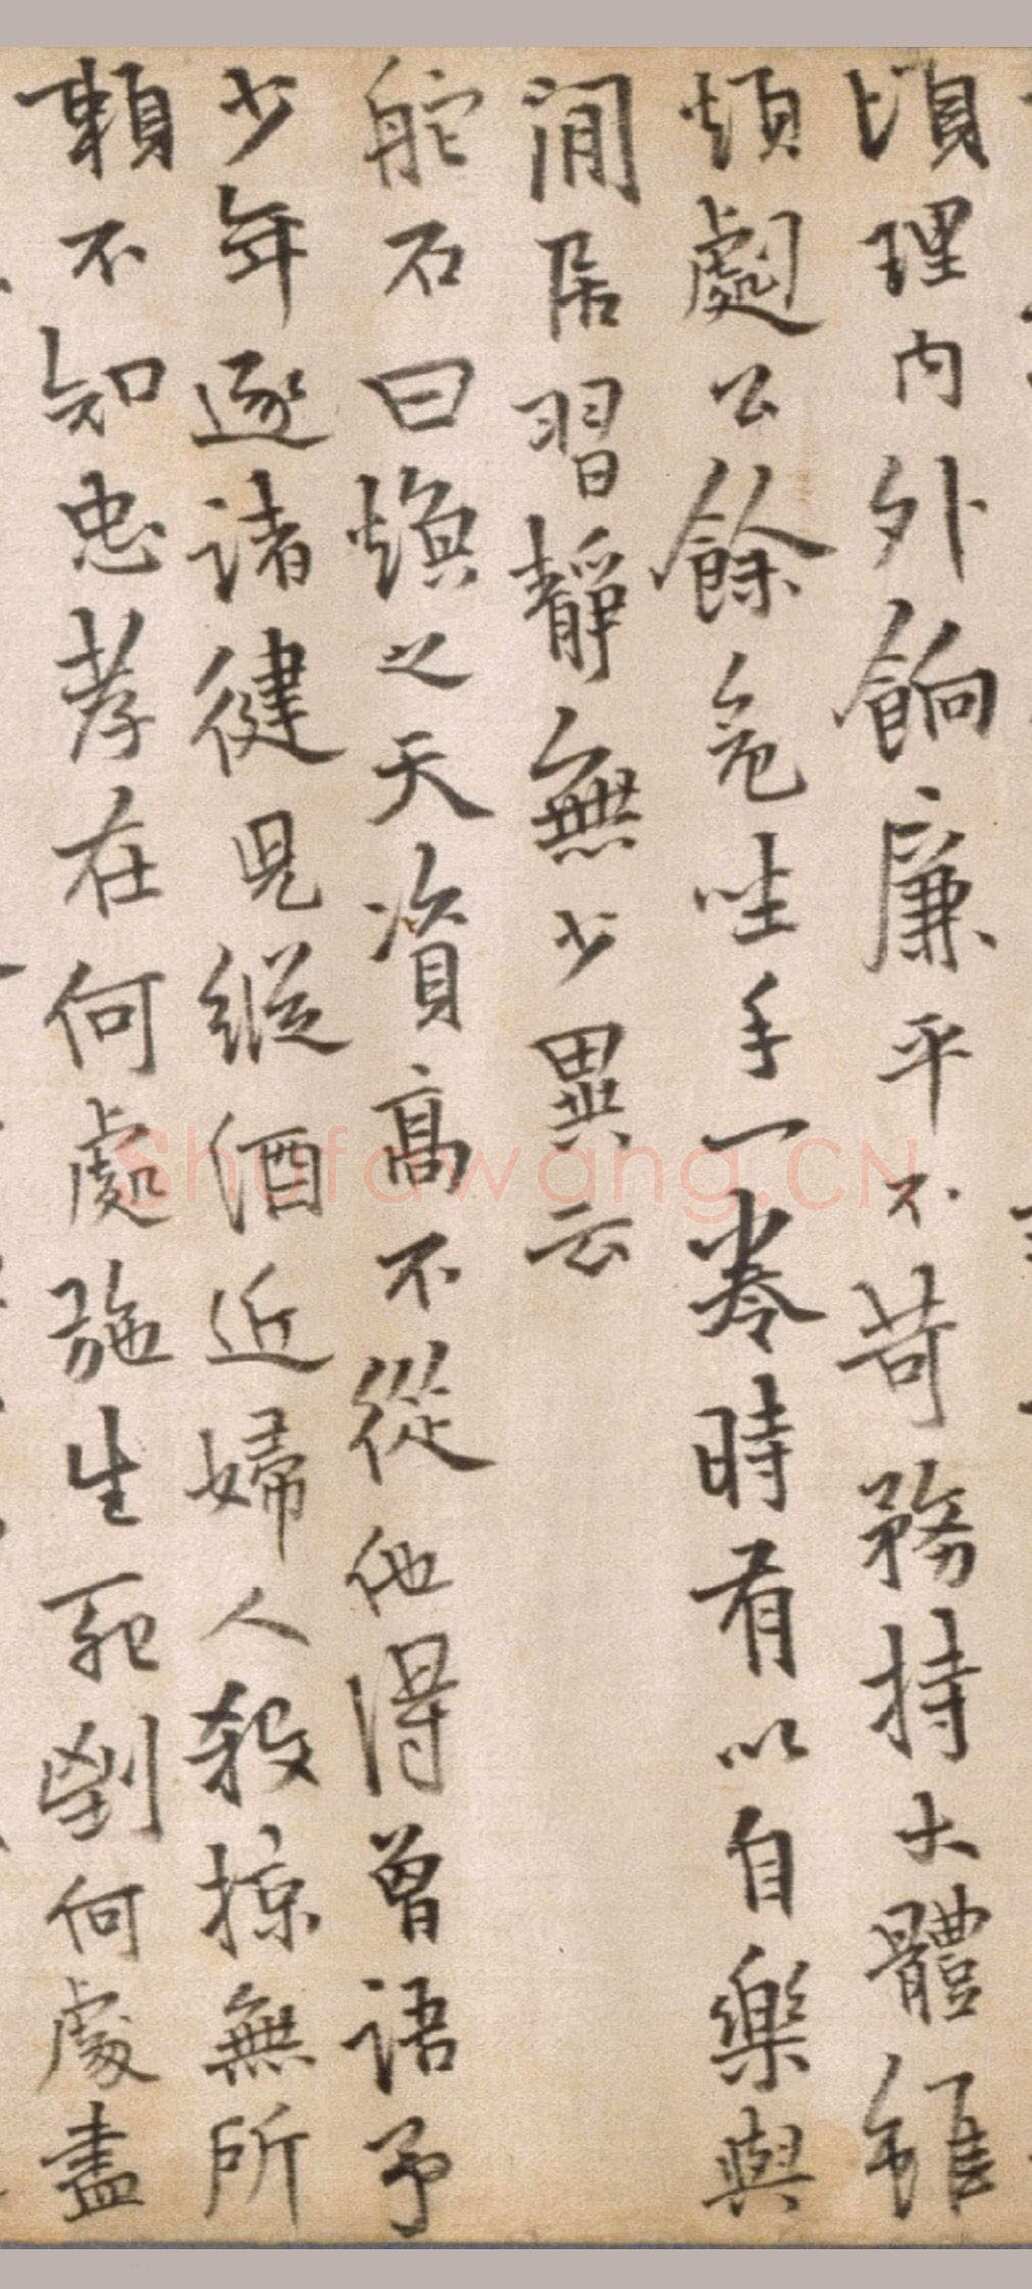 頃理内外餉廉平不苛務持大體雖
煩劇公餘危坐手一卷時有以自樂與
閒居習靜無少異云
舵石曰煥之天資高不從他得曾語予
少年逐諸健児縱酒近婦人殺掠無所
賴不知忠孝在何處施生死何處盡
Shufawang.CN